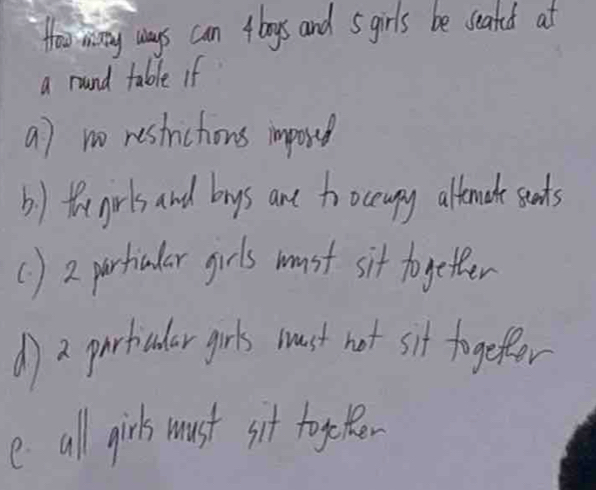 How many ways can 4 boys and 5 girls be seated at
a round table if
a) no restrictions imposed
b.) the girls and boys are to occupy alternate seats
c.) 2 particular girls must sit together
d) 2 particular girls must not sit together
e. all girls must sit together